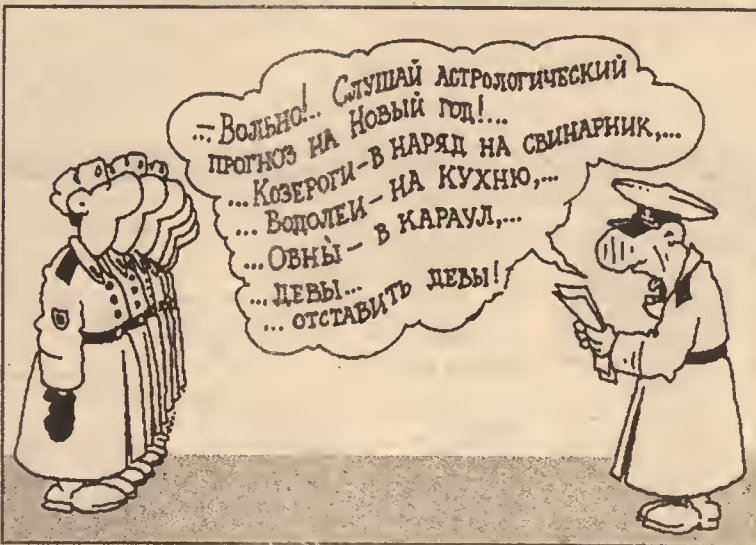 ...– Вольно!.. Слушай астрологический
прогноз на Новый год!...
...Козероги – в наряд на свинарник,...
... Водолеи – на кухню,...
...Овны̀ – в караул,...
...девы...
... отставить девы!